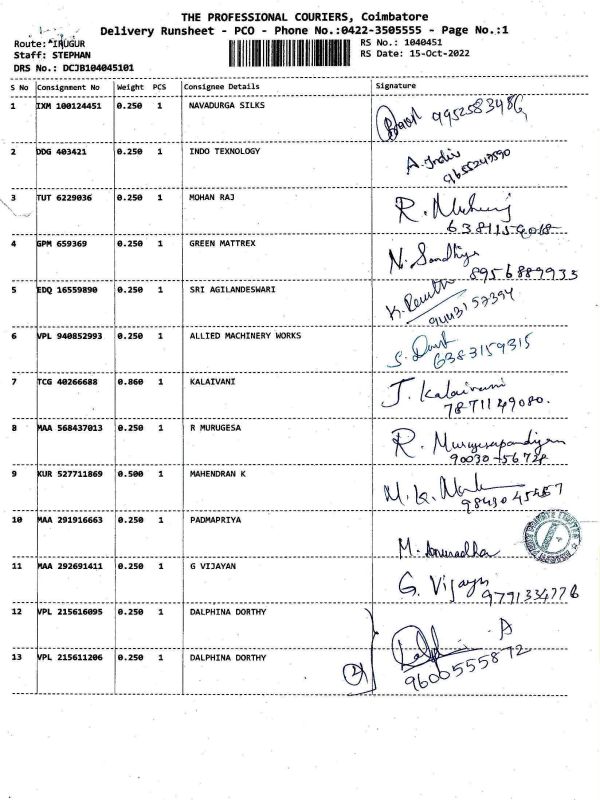 THE PROFESSIONAL COURIERS, Coimbatore
Delivery Runsheet - PCO - Phone No.:0422-3505555 - Page No.:1
Route: IRUGUR
RS No.: 1040451
Staff: STEPHAN
RS Date: 15-Oct-2022
DRS No.: DCJB104045101
S No Consignment No Weight PCS Consignee Details Signature
1 IXM 100124451 0.250 1 NAVADURGA SILKS 9952583486
2 DDG 403421 0.250 1 INDO TEXNOLOGY A. Indiu
3 TUT 6229036 0.250 1 MOHAN RAJ R.
4 GPM 659369 0.250 1 GREEN MATTREX N. Sandhiya
8956889933
5 EDQ 16559890 0.250 1 SRI AGILANDESWARI K.
9443157394
6 VPL 940852993 0.250 1 ALLIED MACHINERY WORKS S.
6383159315
7 TCG 40266688 0.860 1 KALAIVANI J. Kalaivani
7871149080.
8 MAA 568437013 0.250 1 R MURUGESA R. Murugesapandiyan
90030-56728
9 KUR 527711869 0.500 1 MAHENDRAN K M. K.
9843045487
10 MAA 291916663 0.250 1 PADMAPRIYA M. Anuradha
11 MAA 292691411 0.250 1 G VIJAYAN G. Vijayn
9791334776
12 VPL 215616095 0.250 1 DALPHINA DORTHY A
13 VPL 215611206 0.250 1 DALPHINA DORTHY 2 9600555872